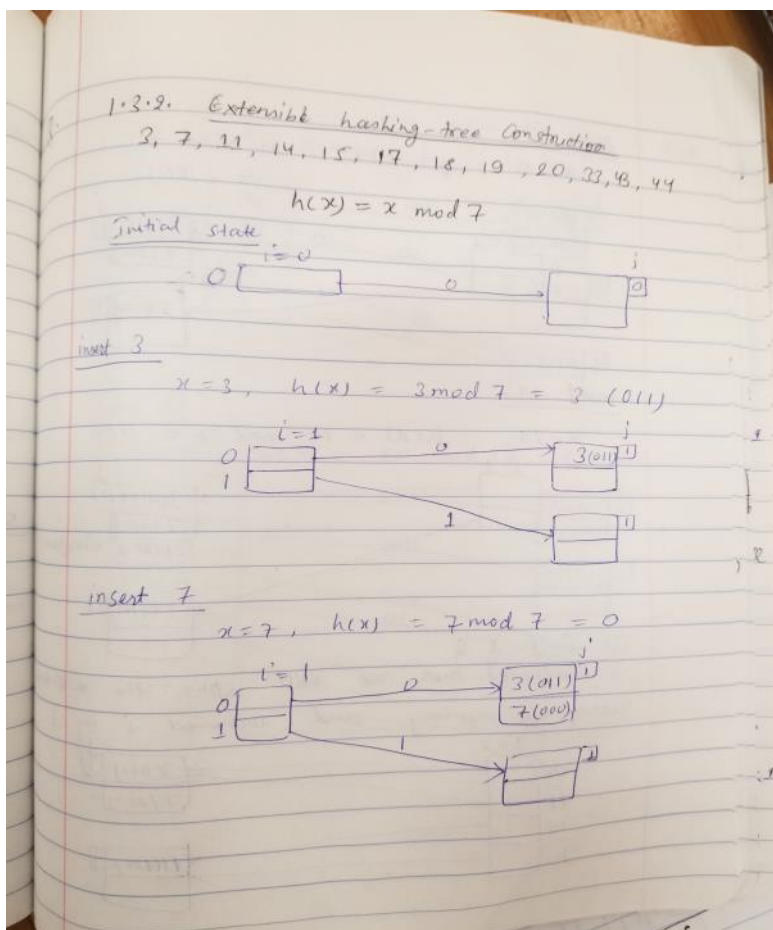 1.3.2. Extensible hashing-tree Construction
3, 7, 11, 14, 15, 17, 18, 19, 20, 33, 43, 44
h(x) = x mod 7
Initial state
i=0
j
0 0 0
insert 3
x=3, h(x) = 3 mod 7 = 3 (011)
i=1
j
0 0 3(011) 1
1
1 1
insert 7
x=7, h(x) = 7 mod 7 = 0
i=1
j
0 0 3(011) 1
1 7(000)
1 1